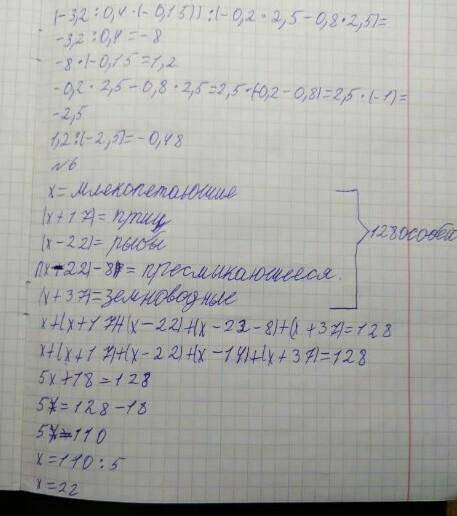 (-3,2 : 0,4 · (-0,15)) : (-0,2 · 2,5 - 0,8 · 2,5) =
-3,2 : 0,4 = -8
-8 · (-0,15 = 1,2
-0,2 · 2,5 - 0,8 · 2,5 = 2,5 · (-0,2 - 0,8) = 2,5 · (-1) =
-2,5
1,2 : (-2,5) = -0,48
№6
x = млекопетающие
(x+17) = птиц
(x-22) = рыбы
128 особей
(x-22)-8) = пресмыкающиеся.
(x+37) = земноводные
x+(x+17)+(x-22)+(x-22-8)+(x+37)=128
x+(x+17)+(x-22)+(x-14)+(x+37)=128
5x+18=128
5x=128-18
5x=110
x=110:5
x=22